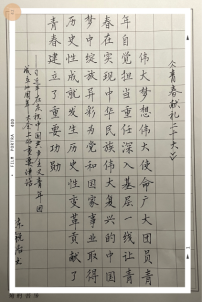 《青春献礼二十大》
伟大梦想伟大使命广大团员青
年自觉担当重任深入基层一线让青
春在实现中华民族伟大复兴的中国
梦中绽放异彩为党和国家事业取得
历史性成就发生历史性变革贡献了
青春建立了重要功勋
——习近平在庆祝中国共产主义青年团
成立周年大会上的重要讲话